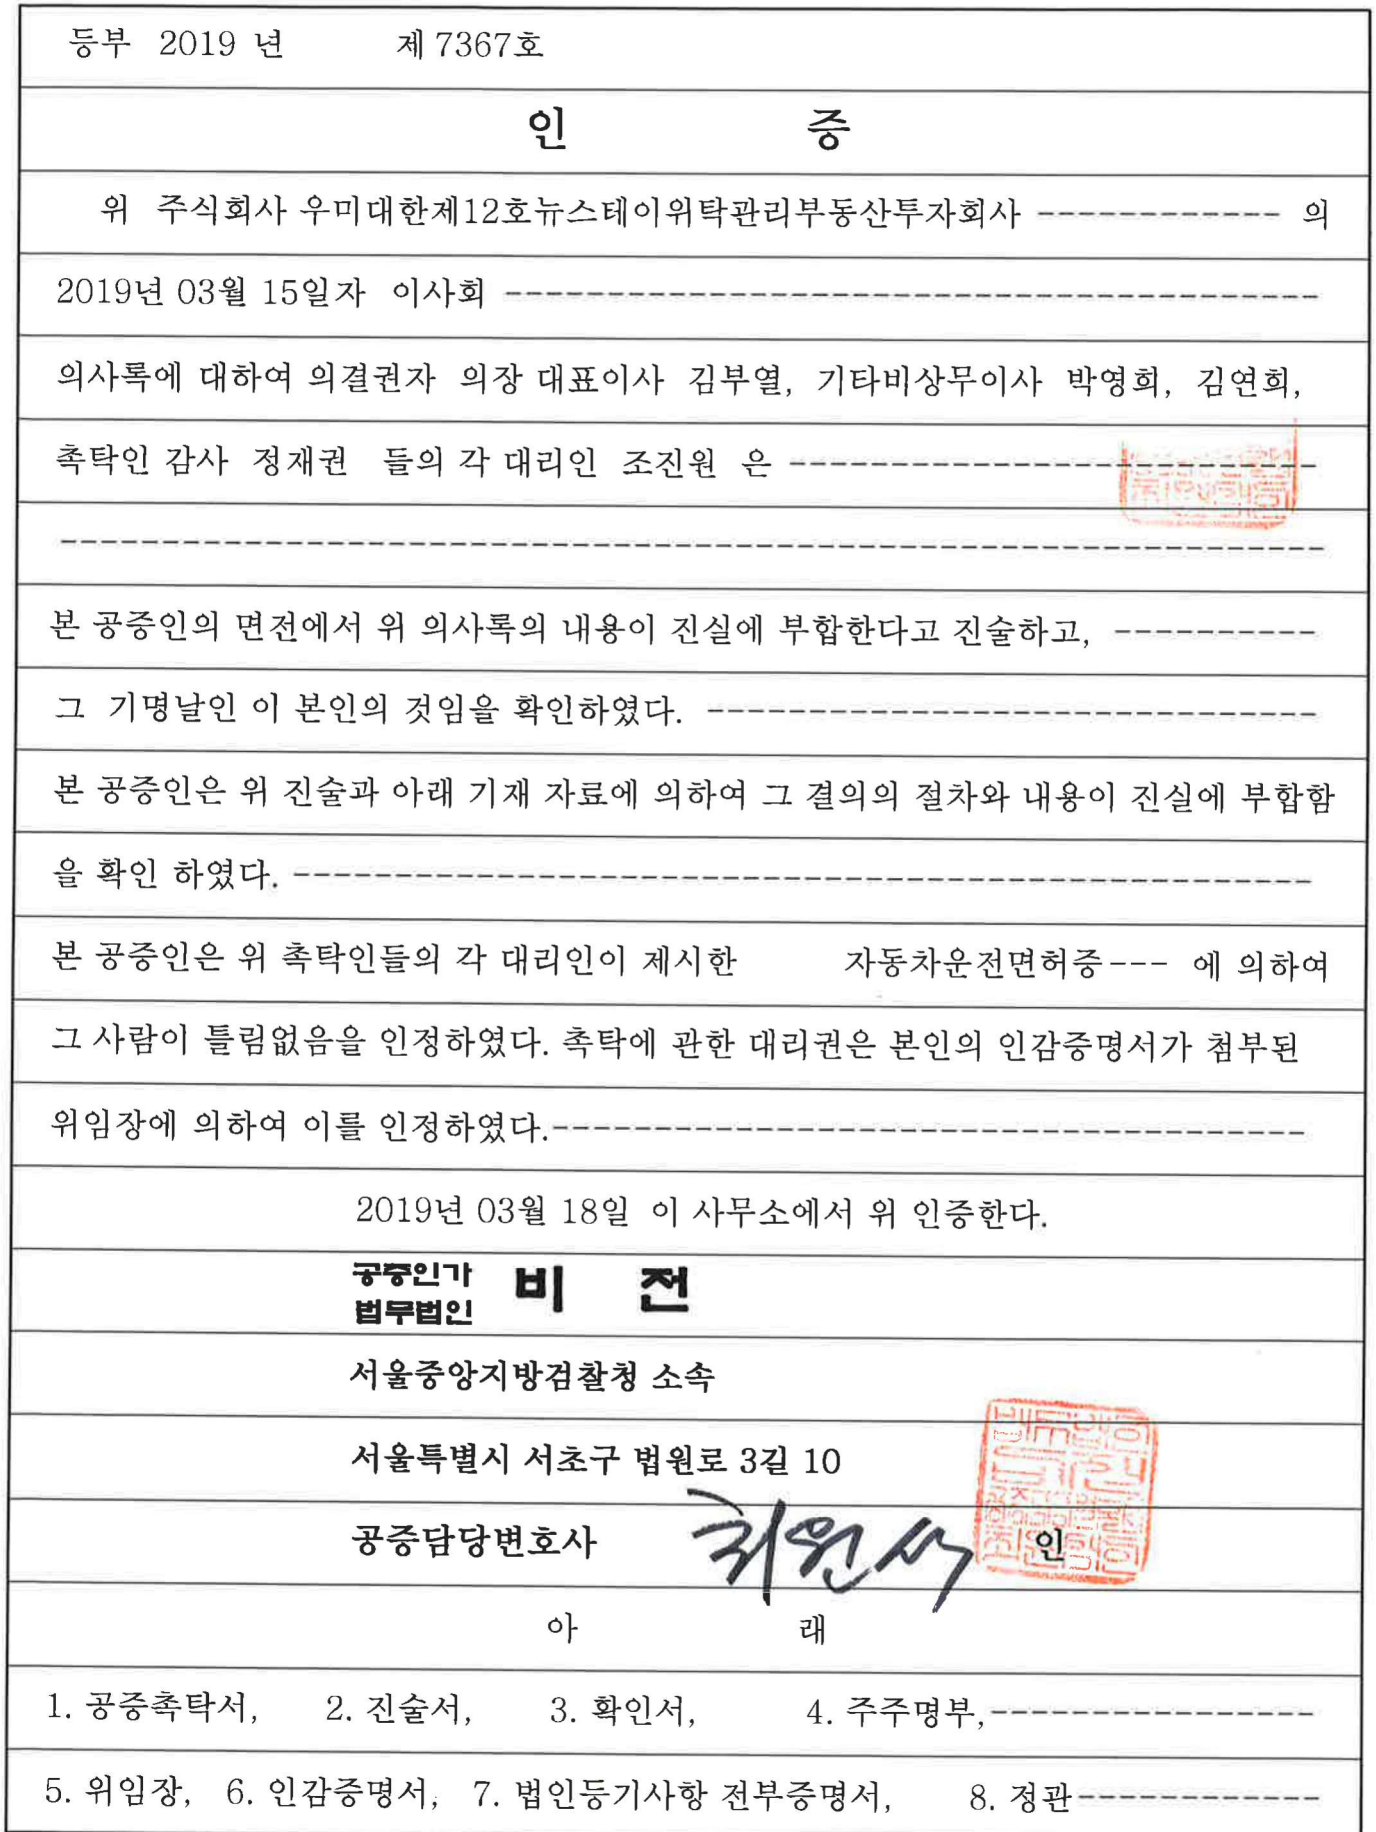 등부 2019 년 제 7367호
인 증
위 주식회사 우미대한제12호뉴스테이위탁관리부동산투자회사 ------------ 의
2019년 03월 15일자 이사회 ----------------------------------------
의사록에 대하여 의결권자 의장 대표이사 김부열, 기타비상무이사 박영희, 김연희,
촉탁인 감사 정재권 들의 각 대리인 조진원 은 --------------------------
--------------------------------------------------------------
본 공증인의 면전에서 위 의사록의 내용이 진실에 부합한다고 진술하고, ----------
그 기명날인 이 본인의 것임을 확인하였다. ------------------------------
본 공증인은 위 진술과 아래 기재 자료에 의하여 그 결의의 절차와 내용이 진실에 부합함
을 확인 하였다. --------------------------------------------------
본 공증인은 위 촉탁인들의 각 대리인이 제시한 자동차운전면허증--- 에 의하여
그 사람이 틀림없음을 인정하였다. 촉탁에 관한 대리권은 본인의 인감증명서가 첨부된
위임장에 의하여 이를 인정하였다.-------------------------------------
2019년 03월 18일 이 사무소에서 위 인증한다.
공증인가 법무법인 비 전
서울중앙지방검찰청 소속
서울특별시 서초구 법원로 3길 10
공증담당변호사 인
아 래
1. 공증촉탁서, 2. 진술서, 3. 확인서, 4. 주주명부,----------------
5. 위임장, 6. 인감증명서, 7. 법인등기사항 전부증명서, 8. 정관------------